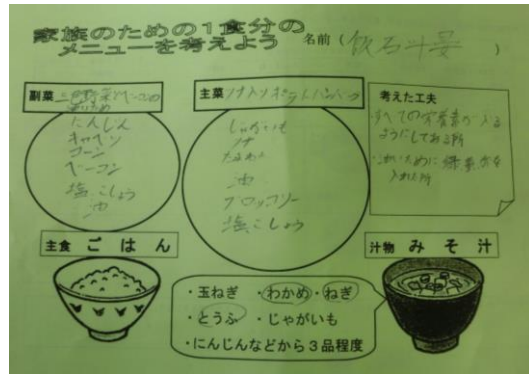 家族のための１食分の
メニューを考えよう
名前（飯石斗晏）
副菜 三色野菜とベーコンの
いため
にんじん
キャベツ
コーン
ベーコン
塩、こしょう
油
主菜 ツナ入りポテトハンバーグ
じゃがいも
ツナ
たまねぎ
油
ブロッコリー
塩、こしょう
考えた工夫
・すべての栄養素が入る
ようにしてある所
入れた所
主食 ごはん
汁物 みそ汁
・玉ねぎ ・わかめ ・ねぎ
・とうふ ・じゃがいも
・にんじんなどから３品程度